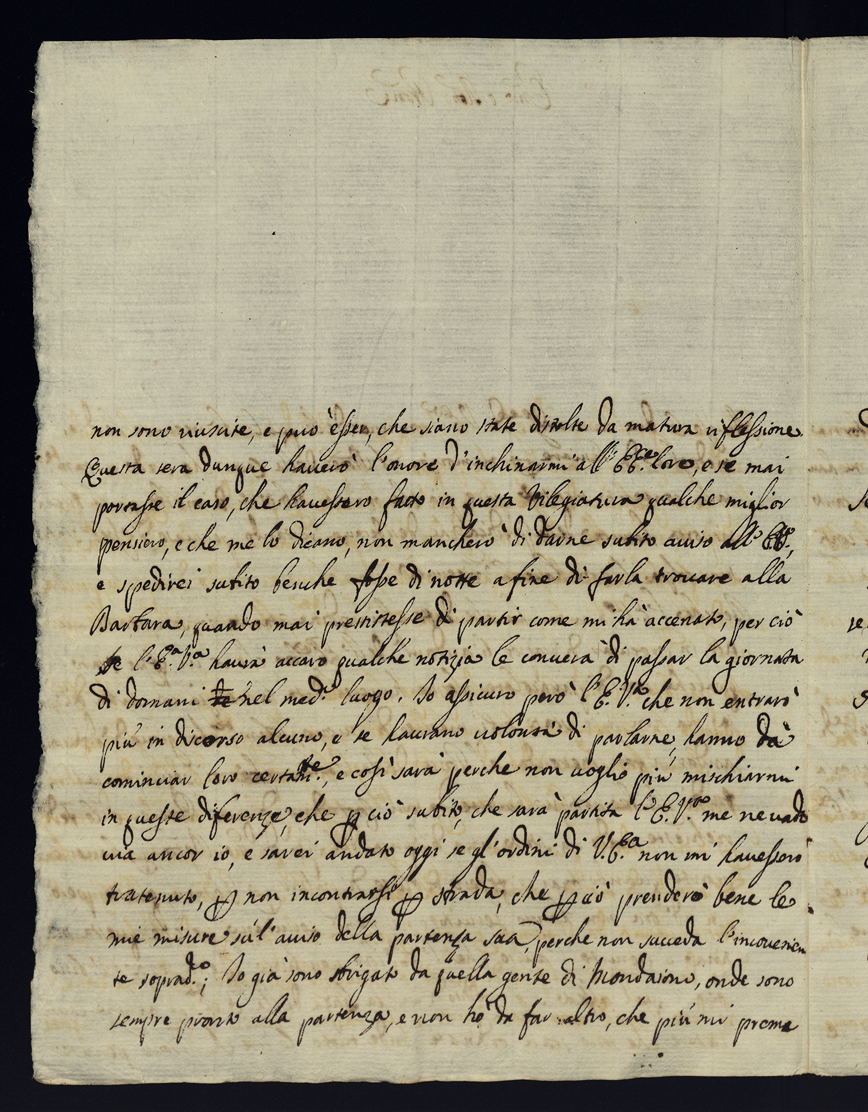 non sono riuscite, e può èsser, che siano state distolte da matura riflessione.
Questa sera dunque haverò l'onore d'inchinarmi all' EE.ze loro, e se mai
portasse il caso, che havessero fatto in questa Vilegiatura qualche miglior
pensiero, e che me lo dicano, non mancherò di darne subito aviso all' EE.,
e spedirei subito benche fosse di notte a fine di farla trovare alla
Barbara, quando mai prestistesse di partir come mi hà accenato, per ciò
se l'E.a V.a havrà accaro qualche notizia le converà di passar la giornata
di domani nel med.o luogo. Io assicuro però l'E. V.ra che non entrarò
più in discorso alcuno, e se havrano volontà di parlarne, hanno dà
cominciar loro certam.te, e così sarà perche non voglio più mischiarmi
in queste diferenze, che p ciò subito, che sarà partita l'E. V.ra me ne vado
via ancor io, e sarei andato oggi se gl'ordini di V. E.a non mi havessero
tratenuto, p non incontrarsi p strada, che p ciò prenderò bene le
mie misure sù l'aviso della partenza sua, perche non succeda l'inconvenien
te soprad.o; Io già sono sbrigato da quella gente di Mondasono, onde sono
sempre pronto alla partenza, e non hò da far altro, che più mi prema